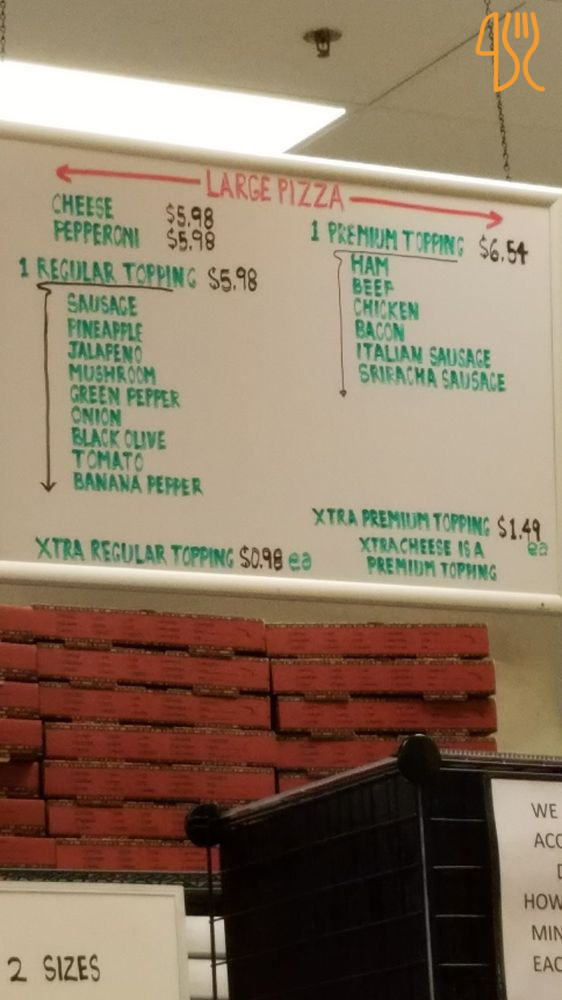 LARGE PIZZA
CHEESE $5.98
PEPPERONI $5.98
1 REGULAR TOPPING $5.98
SAUSAGE
PINEAPPLE
JALAPENO
MUSHROOM
GREEN PEPPER
ONION
BLACK OLIVE
TOMATO
BANANA PEPPER
XTRA REGULAR TOPPING $0.98 ea
1 PREMIUM TOPPING $6.54
HAM
BEEF
CHICKEN
BACON
ITALIAN SAUSAGE
SRIRACHA SAUSAGE
XTRA PREMIUM TOPPING $1.49 ea
XTRA CHEESE IS A
PREMIUM TOPPING
2 SIZES
WE
ACC
HOW
MIN
EAC